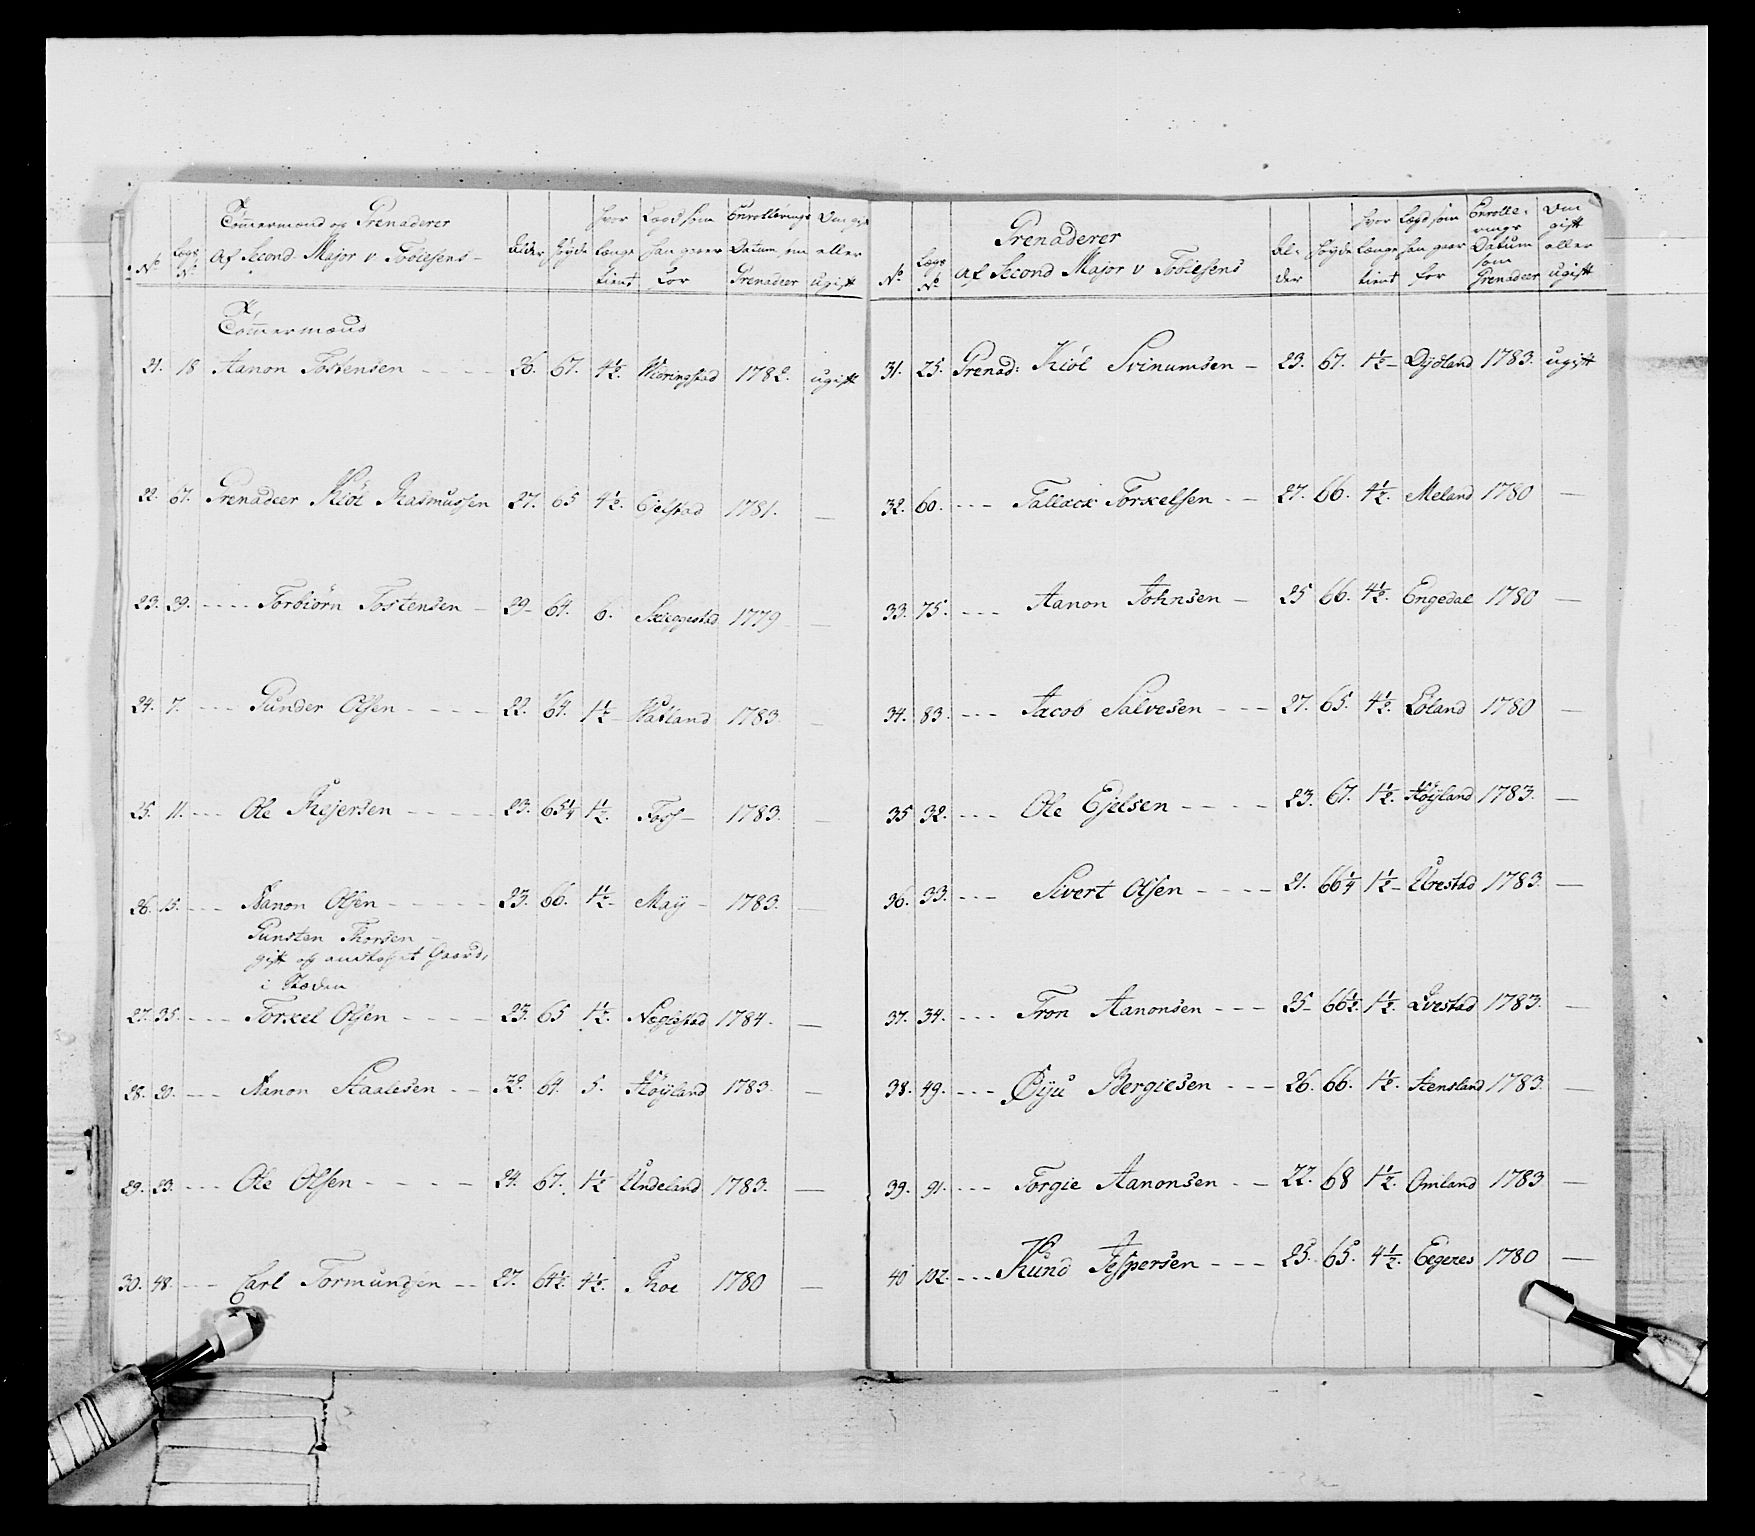 Tømmermænd og Grenaderer
Af Second Major v Tobiesens
No
Lægs No
Alder
Høyde
Hvor længe tient
Lægd som han giør for
Enrollerings Datum som Grenadeer
Om gift eller ugift
Tømmermænd
21. 18 Aanon Tostensen - - - - 26. 67. 4½. 1782. ugift
22. 67. Grenadeer Kiøl Rasmussen 27. 65 4½. Eielstad 1781. —
23. 29. - - - - Torbiørn Tostensen - 29- 64. 6. Skieggestad 1779 —
24. 7. - - - Gunder Olsen - - - - 22. 64. 1½ Hatland 1783. —
25. 11. - - - Ole Reiersen - - - - 23. 65¼ 1½. Foss - 1783. —
26. 15. - - - Aanon Olsen - - - - - 23. 66. 1½- Maÿ - 1783. —
Gunsten Thorsen -
gift og Gaard,
i Steden
27. 35. - - - Torkel Olsen - - - - 23. 65 1½. Neglestad 1784. —
28. 20. - - - Aanon Staalesen - - 32. 64. 5. Høÿland 1783. —
29. 23. - - - Ole Olsen - - - - - 24. 67. 1½ Undeland 1783. —
30. 48. - - - Carl Tormundsen - - 27. 64½. 4½. Roe 1780 —
Grenaderer
Af Second Major v Tobiesens
No
Lægs No
Alder
Høyde
Hvor længe tient
Lægd som han giør for
Enrollerings Datum som Grenadeer
Om gift eller ugift
31. 25. Grenad: Kiøl Svinumsen - 23. 67. 1½- Dydland 1783. ugift
32. 60. - - - Tallack Torkelsen - - 27. 66. 4½. Meland 1780 —
33. 75. - - - Aanon Johnsen - 25 66. 4½. Engedal 1780 —
34. 83. - - - Jacob Salvesen - - - 27. 65. 4½. Løland 1780 —
35 32. - - - Ole Ejelsen - - - - 23. 67. 1½. Høÿland 1783. —
36. 33. - - - Sivert Olsen - - - - 21. 66¼ 1½- Urestad 1783. —
37. 34. - - - Tron Aanonsen - - - 25- 66½. 1½. 1783. —
38. 49. - - - Øÿu Bergiesen - - - 26. 66. 1½. Stensland 1783. —
39. 91. - - - Torgie Aanonsen - - 22. 68 1½. Omland 1783 —
40 102. - - - Knud Jespersen - - - 25. 65. 4½. Eegenes 1780 —